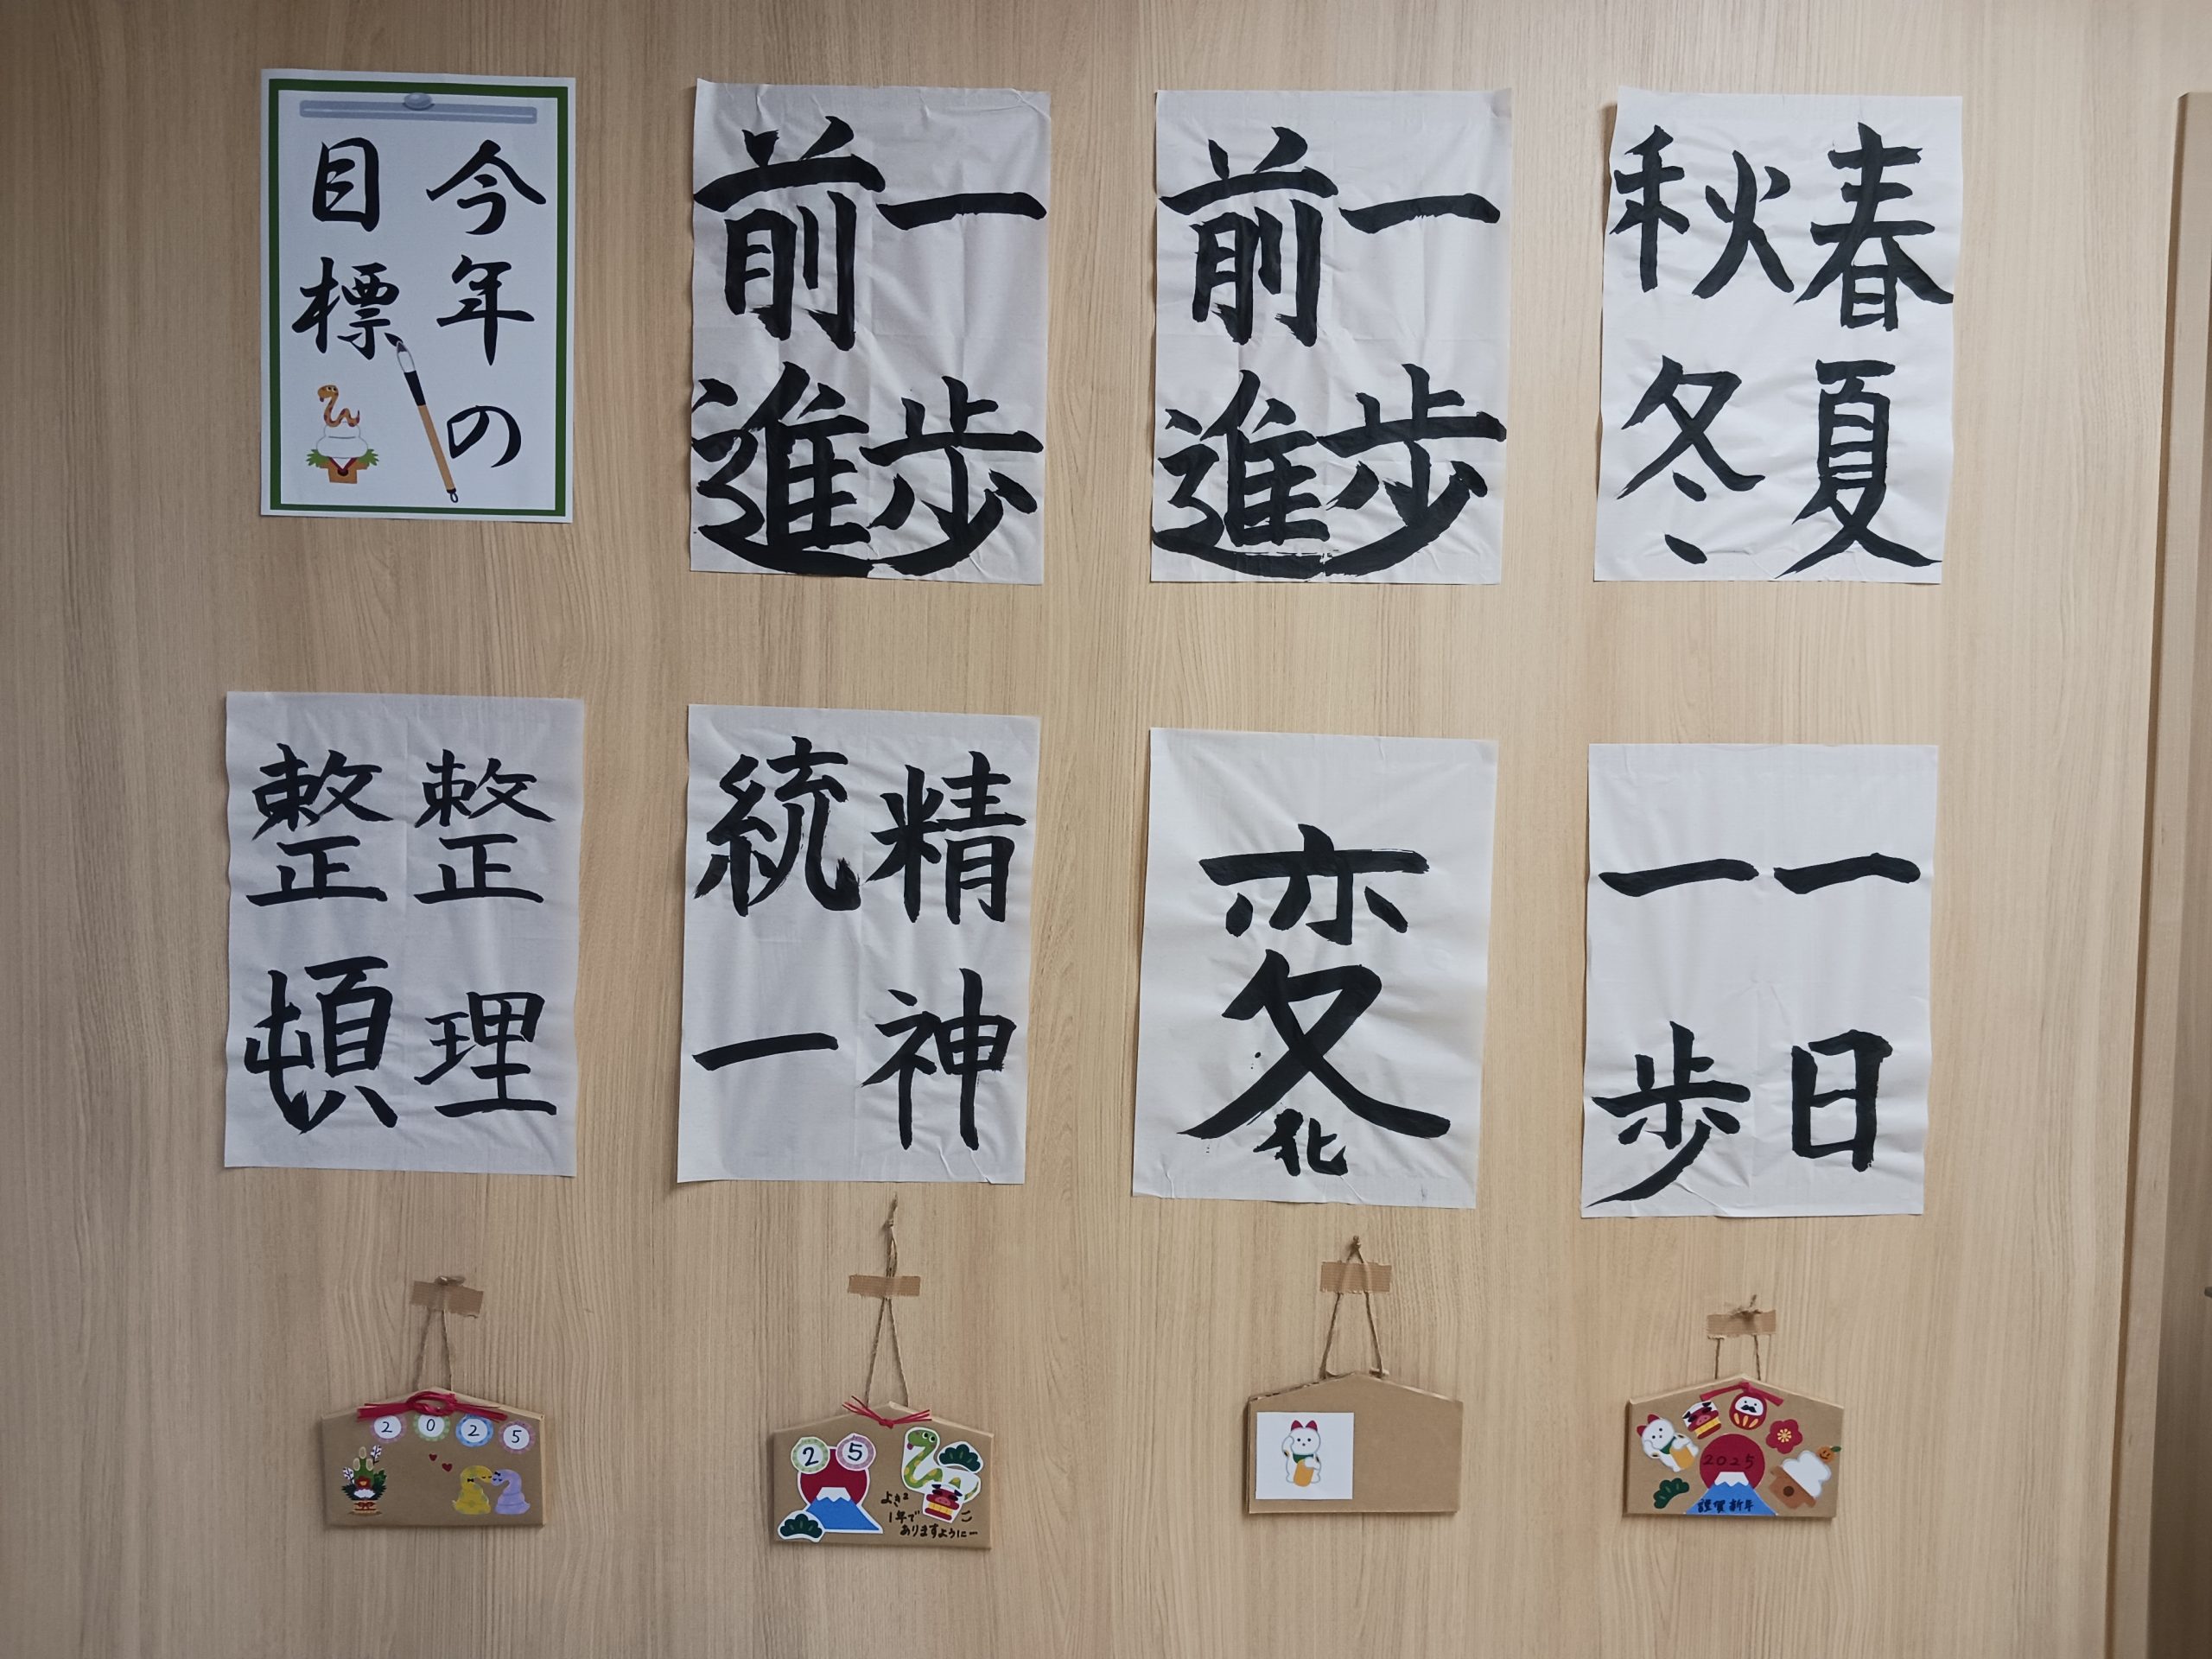 今年の
目標
一歩
前進
一歩
前進
春夏
秋冬
整理
整頓
精神
統一
変
化
一日
一歩
2025
25
よき
1年で
ありますように
2025
謹賀新年